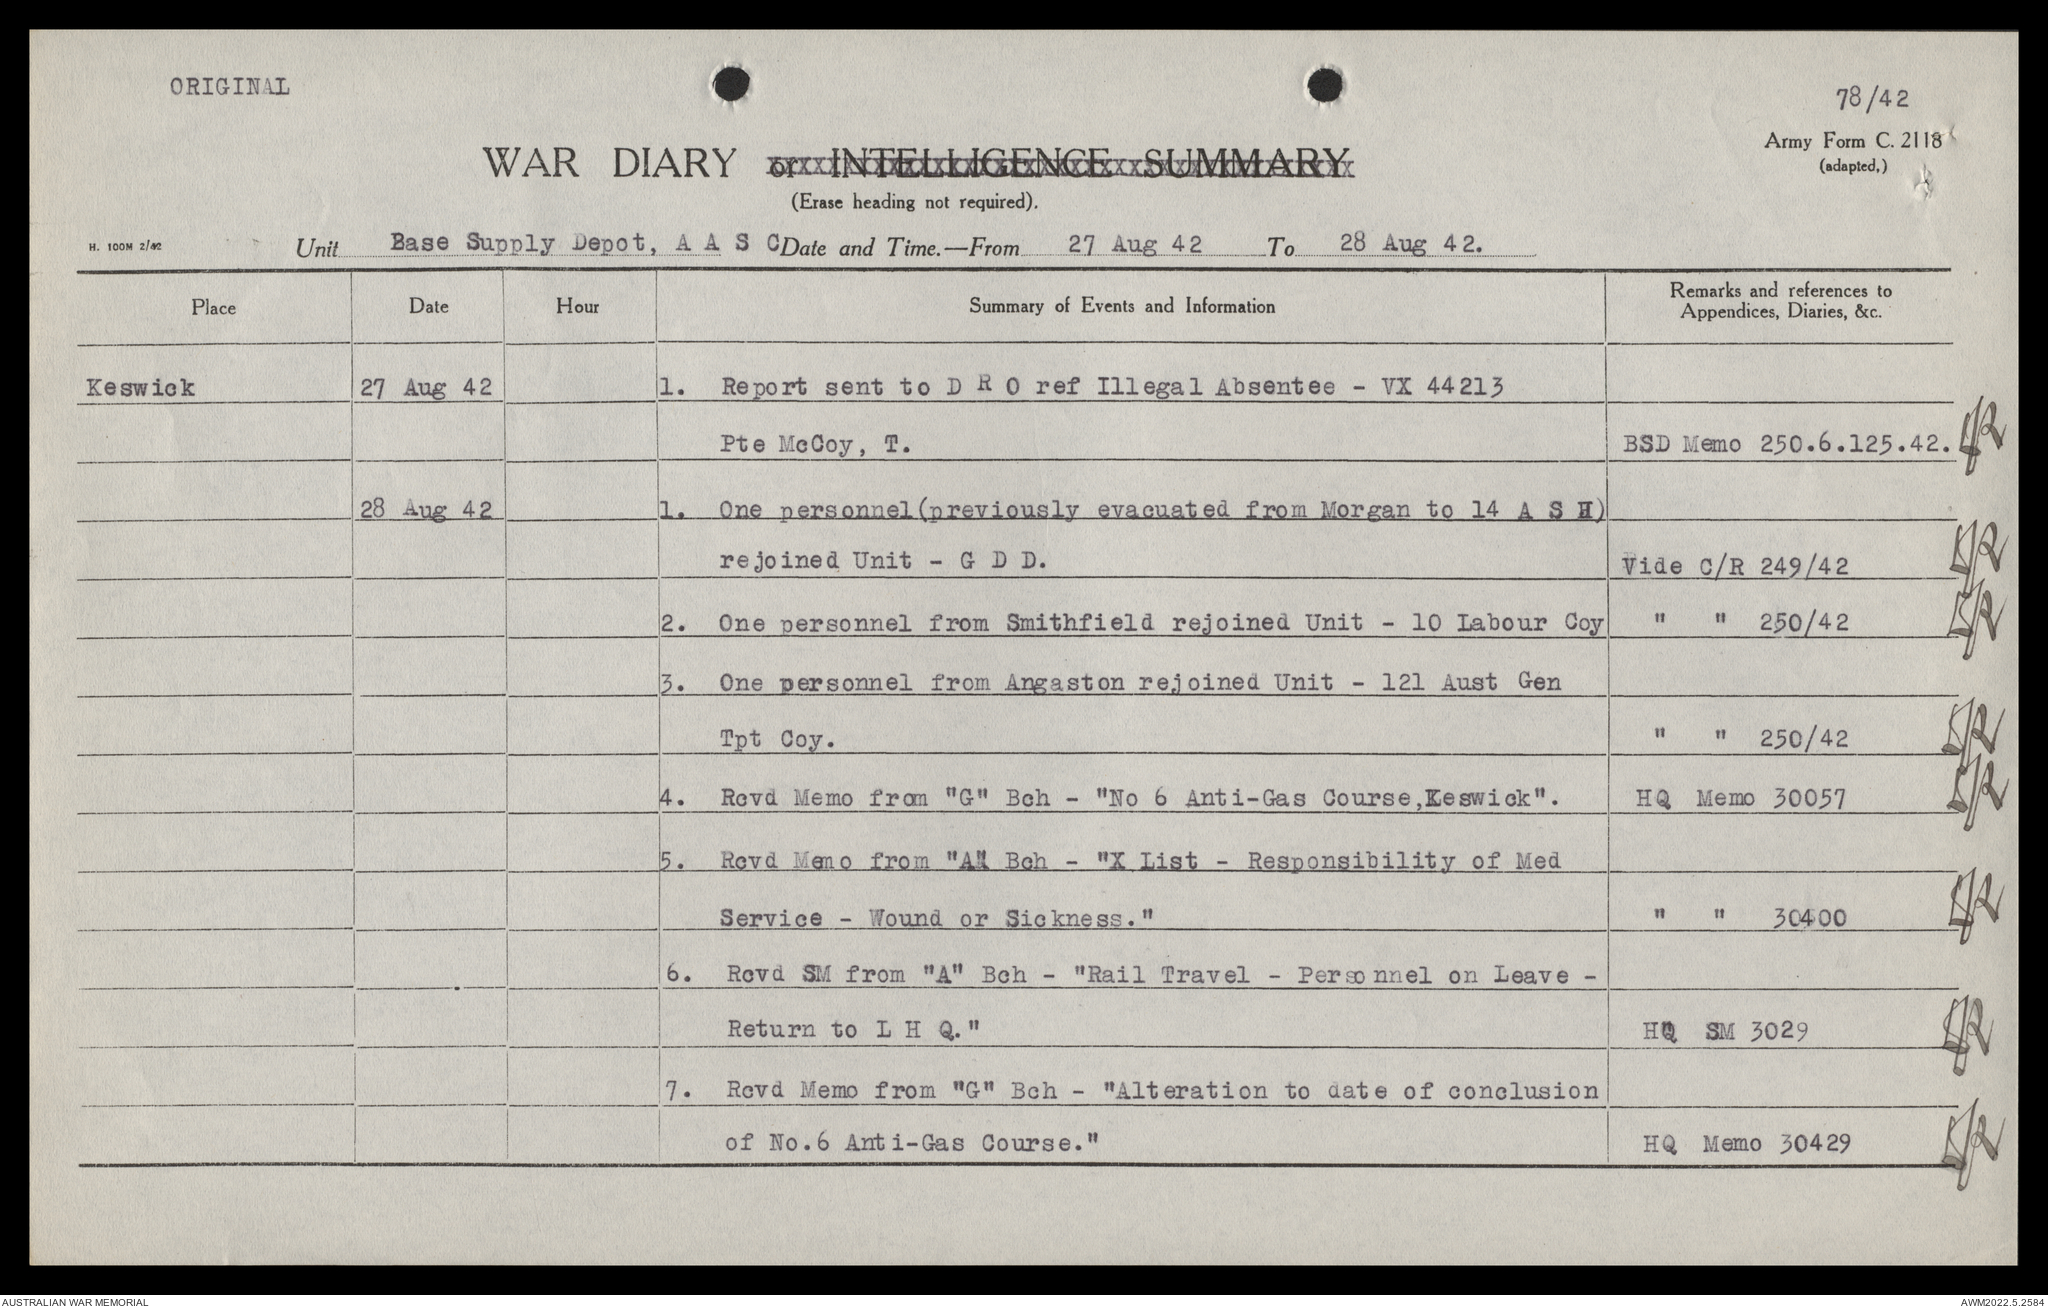 ORIGINAL
78/42
Army Form C. 2118
(adapted,)
WAR DIARY or INTELLIGENCE SUMMARY
(Erase heading not required).
H. 100M 2/42 Unit Base Supply Depot, A A S C Date and Time.—From 27 Aug 42 To 28 Aug 42.
Place Date Hour Summary of Events and Information Remarks and references to
Appendices, Diaries, &c.
Keswick 27 Aug 42 1. Report sent to D R O ref Illegal Absentee - VX 44213
Pte McCoy, T. BSD Memo 250.6.125.42.
28 Aug 42 1. One personnel(previously evacuated from Morgan to 14 A S H)
rejoined Unit - G D D. Vide C/R 249/42
2. One personnel from Smithfield rejoined Unit - 10 Labour Coy " " 250/42
3. One personnel from Angaston rejoined Unit - 121 Aust Gen
Tpt Coy. " " 250/42
4. Rcvd Memo from "G" Bch - "No 6 Anti-Gas Course,Keswick". HQ Memo 30057
5. Rcvd Memo from "A" Bch - "X List - Responsibility of Med
Service - Wound or Sickness." " " 30400
6. Rcvd SM from "A" Bch - "Rail Travel - Personnel on Leave -
Return to L H Q." HQ SM 3029
7. Rcvd Memo from "G" Bch - "Alteration to date of conclusion
of No.6 Anti-Gas Course." HQ Memo 30429
AUSTRALIAN WAR MEMORIAL
AWM2022.5.2584